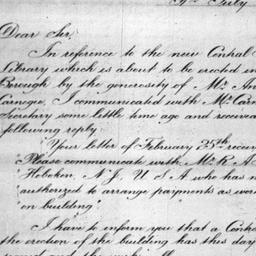 July
Dear Sir,
In reference to the new Central
Library which is about to be erected in
Borough by the generosity of Mr. An
Carnegie, I communicated with Mr. Carn
Secretary some little time ago and receiv
following reply:-
"Your letter of February 25th recei
"Please communicate with Mr. R. A.
"Hoboken, N.J., U.S.A who has n
"authorized to arrange payments as wor
"on building"
I have to inform you that a Contra
the erection of the building has this day